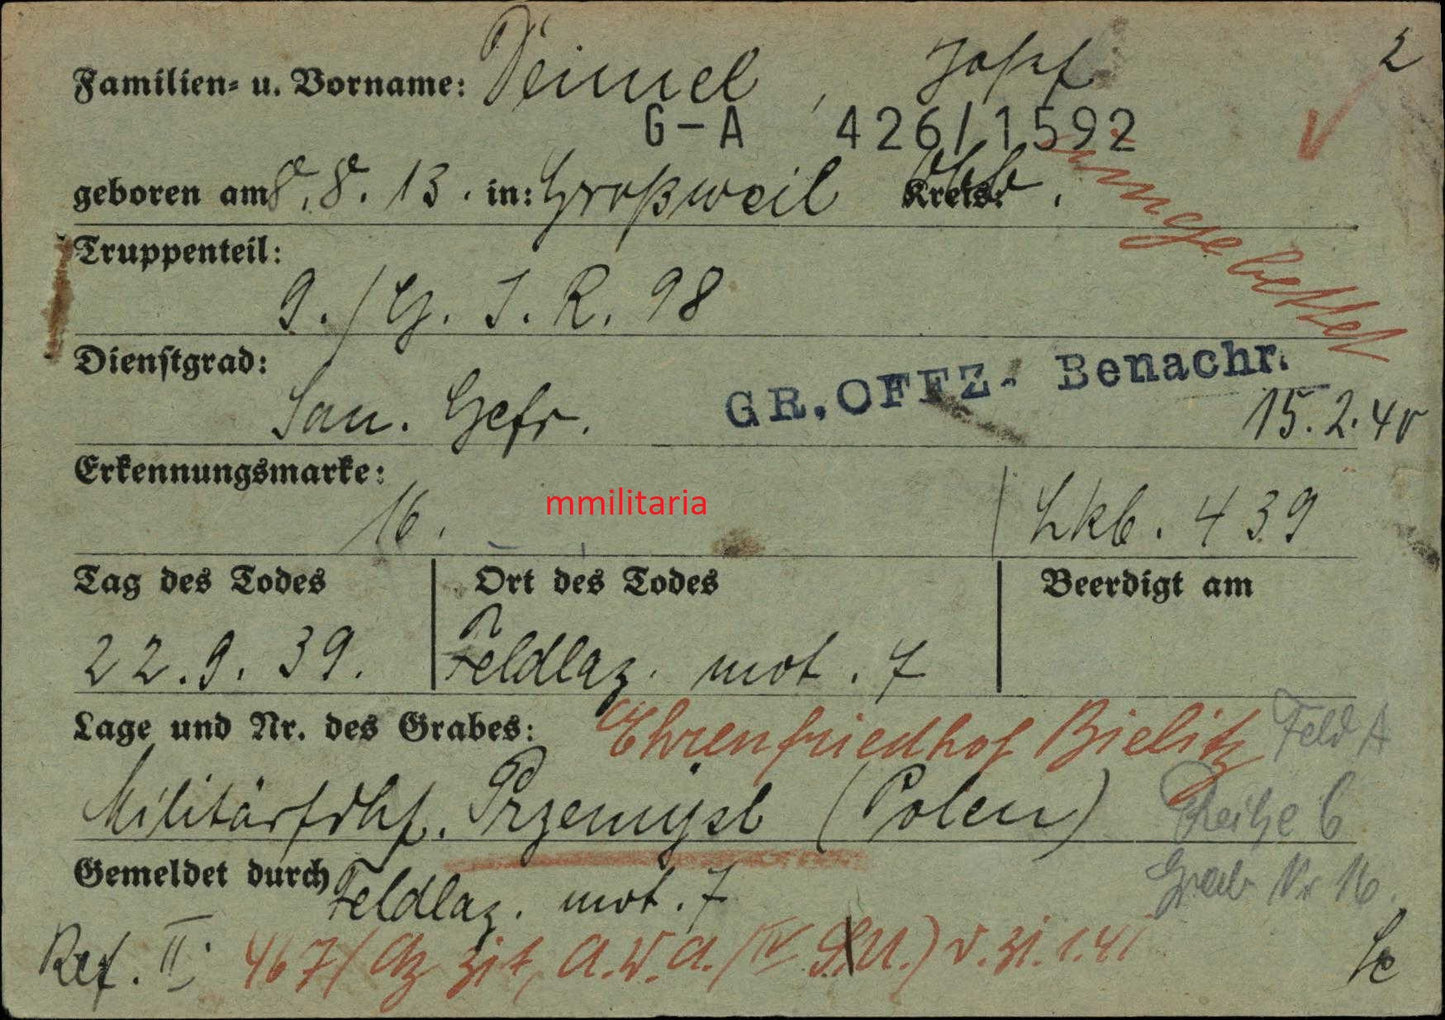 2
Familien- u. Vorname: Deimel, Josef
G-A 426/1592
geboren am 8.8.13. in: Großweil Kreis: Obb.
umgebettet
Truppenteil:
9./G.I.R. 98
Dienstgrad:
San. Gefr.
GR.OFFZ- Benachr.
15.2.40
Erkennungsmarke:
16.
mmilitaria
Lkb. 439
Tag des Todes Ort des Todes Beerdigt am
22.9.39. Feldlaz. mot. 7
Lage und Nr. des Grabes: Ehrenfriedhof Bielitz Feld A
Militärfdhf. Przemyśl (Polen) Reihe 6
Grab Nr 16.
Gemeldet durch Feldlaz. mot. 7
Ref. II: 467/ Az A.W.A./ v. 31.1.41